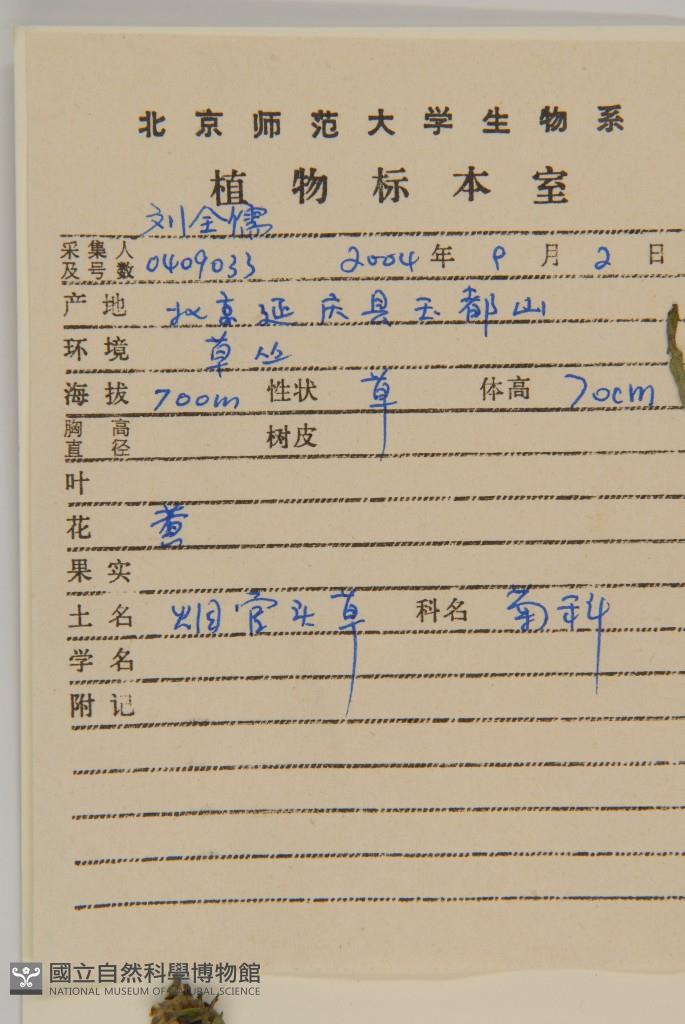 北京师范大学生物系
植物标本室
刘全儒
采集人及号数 0409033 2004年9月2日
产地 北京延庆县玉都山
环境 草丛
海拔 700m 性状 草 体高 70cm
胸高直径 树皮
叶
花 黄
果实
土名 烟管头草 科名 菊科
学名
附记
國立自然科學博物館
NATIONAL MUSEUM OF NATURAL SCIENCE